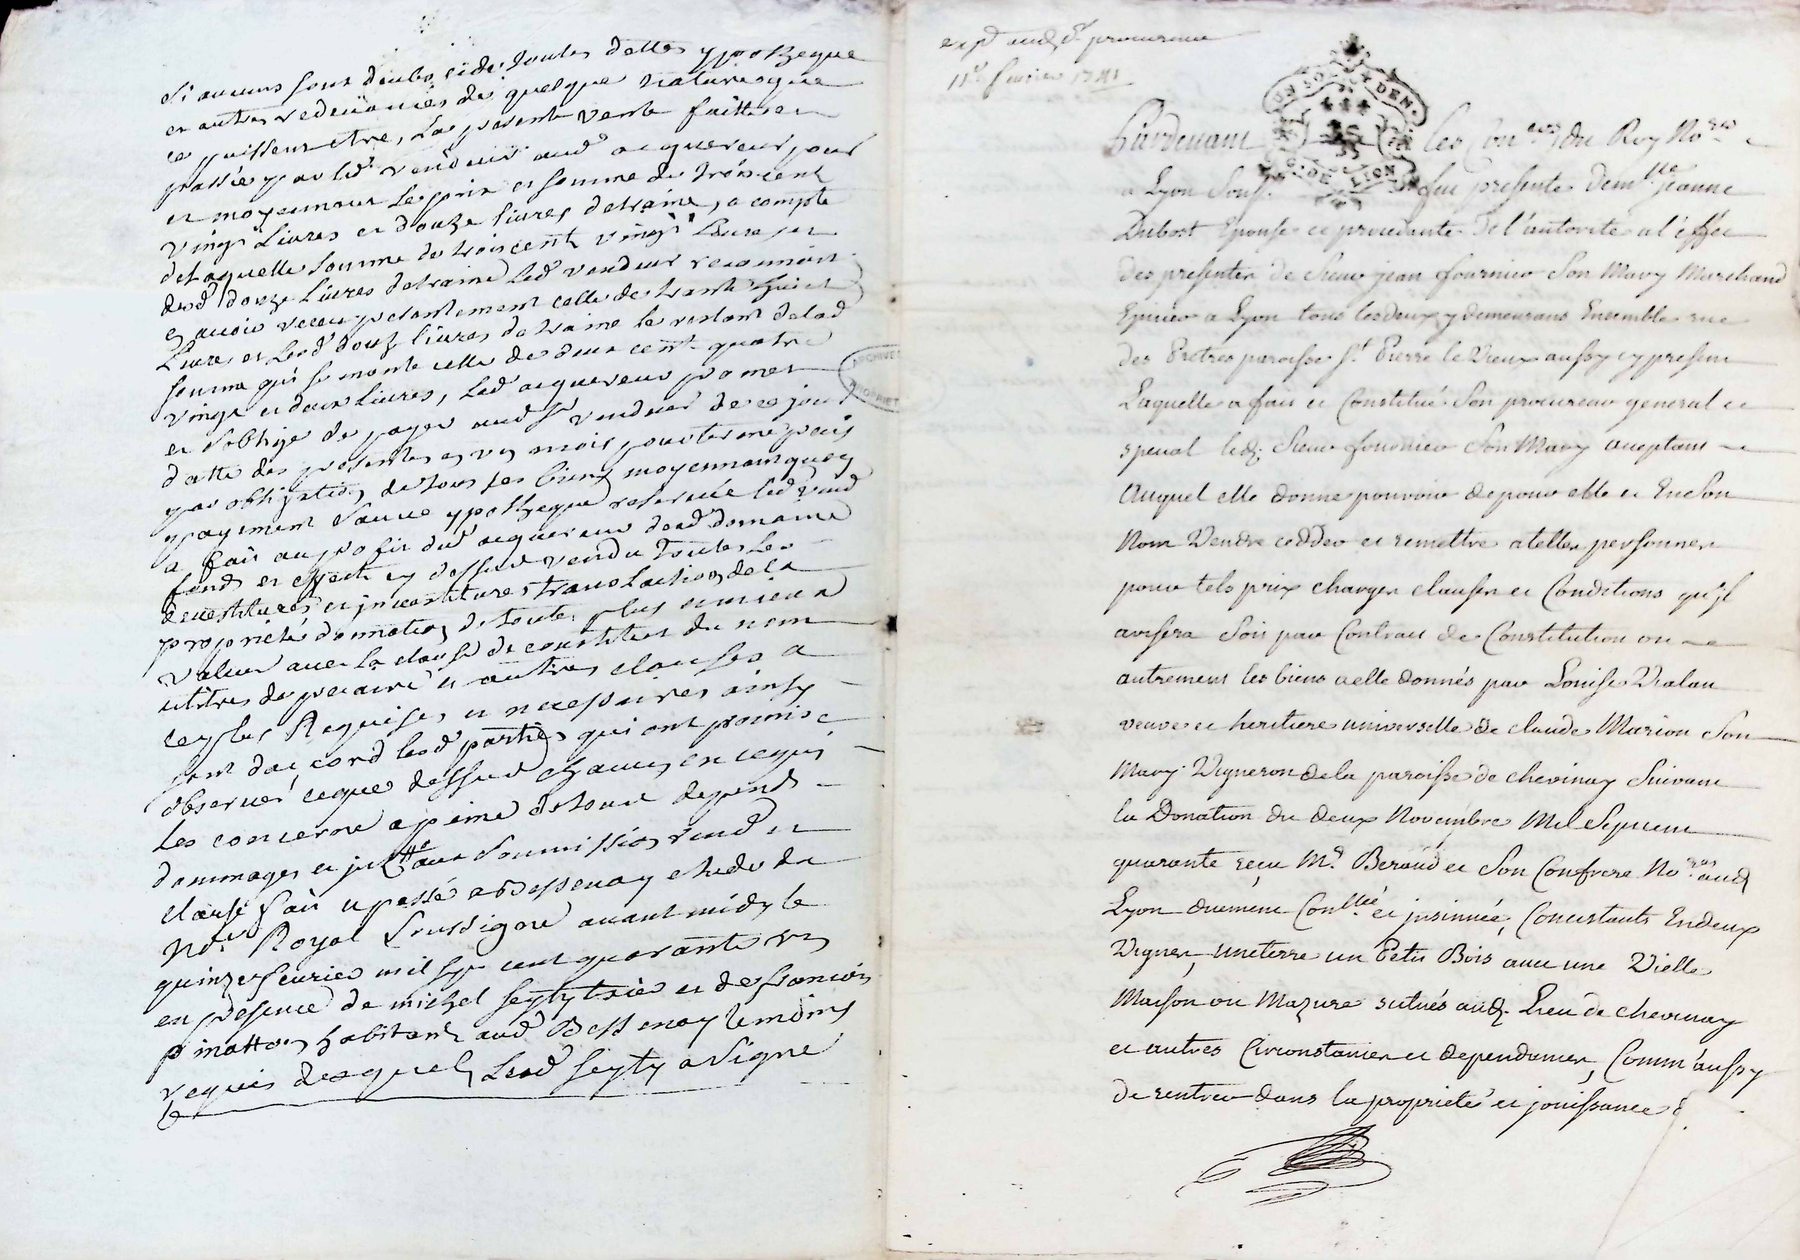 si aucuns sont deubs et de toutes dettes ypotheque
et autres redevances de quelque nature que
ce puissent etre, La presente vente faitte et
passée par led vendeur aud acquereur pour
et moyennant le prix et somme de trois cent
vingt Livres et douze livres detraine, a compte
de Laquelle somme de trois cent vingt Livres et
desd douze Livres detraine led vendeur reconnoit
en avoir receu presentement celle de trente huit
Livres et Lesd douze livres detraine le restant de lad
somme qui se monte celle de deux cent quatre
vingt et deux livres, Led acquereur promet
et soblige de payer aud Sr vendeur de ce jour
datte des presentes en un mois pour terme prefix
par obligation de tous ses biens moyennant quoy
payement sauve ypotheque reservée led vend
a fait au profit dud acquereur desd domaine
fonds et effects cy dessus vendu toutes Les
devestitures et jnvestitures translaction de la
proprieté donnation de toutes plus ou mieux
value avec la clause de constitut du nom
titres de precaire et autres clauses a
ce plus Requises et necessaires ainsy
sont daccord lesd parties qui ont promis
observer ce que dessus chacun en ce qui
Les concerne a peine de tous depends
dommages et jntts avec soumission renonc et
clause fait et passé a Bessenay etude du
Nore Royal soussigné avant midy le
quinze fevrier mil sept cent quarante un
en presence de michel seyty et de francois
pinatton habitant aud Bessenay temoins
requis desquels Led seyty a signé
ARCHIVES
exp aud Sr procureur
11e fevrier 1741
UN SOL 4 DEN.
G. DE LION
Pardevant les Coners du Roy Nores
a Lyon Souss. fut presente demlle jeanne
Dubost Epouse et procedante de l'autorité a l'effet
des presentes de Sieur jean fournier Son Mary Marchand
Epicier a Lyon tous les deux y demeurans Ensemble rue
des Pretres paroisse St Pierre le Vieux aussy cy present
Laquelle a fait et Constitué Son procureur general et
special led. Sieur fournier Son Mary acceptant
Auquel elle donne pouvoir de pour elle et En Son
Nom Vendre cedder et remettre a telles personnes
pour tels prix charges clauses et Conditions qu'jl
avisera Soit par Contrat de Constitution ou
autrement les biens a elle donnés par Louise Vialan
veuve et heritiere universelle de claude Marion Son
Mary Vigneron de la paroisse de chevinay Suivant
la Donation du deux Novembre Mil Sept cent
quarante reçu Me Beraud et Son Confrere Nores aud
Lyon duement Conllée et jnsinuée, Concistants En deux
Vignes, une terre un Petit Bois avec une Vielle
Maison ou Mazure situés aud. Lieu de chevinay
et autres Circonstances et dependances, Comm'aussy
de rentrer dans la proprieté et jouissance